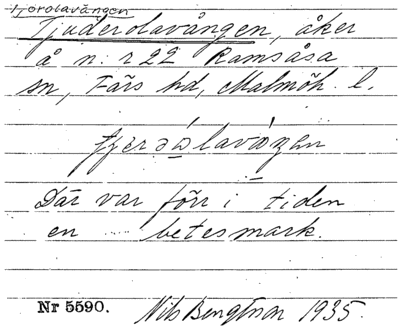 Tjorolavången
Tjuderolavången, åker
å n: r 22 Ramsåsa
sn, Färs hd, Malmöh. l.
Där var förr i tiden
en betesmark.
Nr 5590. Nils Bengtson 1935.